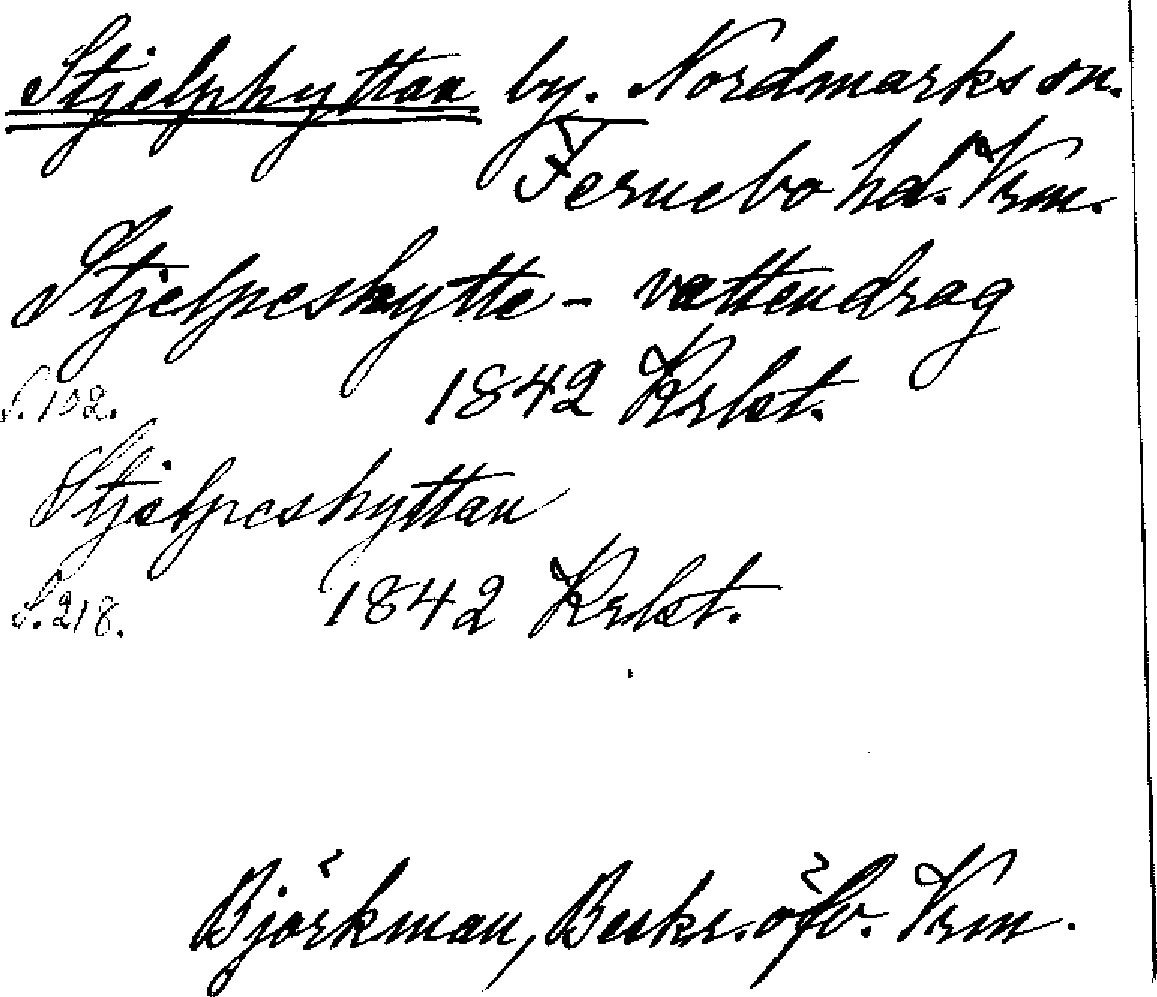 Stjelphyttan by. Nordmarks sn.
Fernebo hd. Vrm.
Stjelpeshytte- vattendrag
S. 192. 1842 Krlst.
Stjelpeshyttan
S. 218. 1842 Krlst.
Björkman, Beskr. öfv. Vrm.